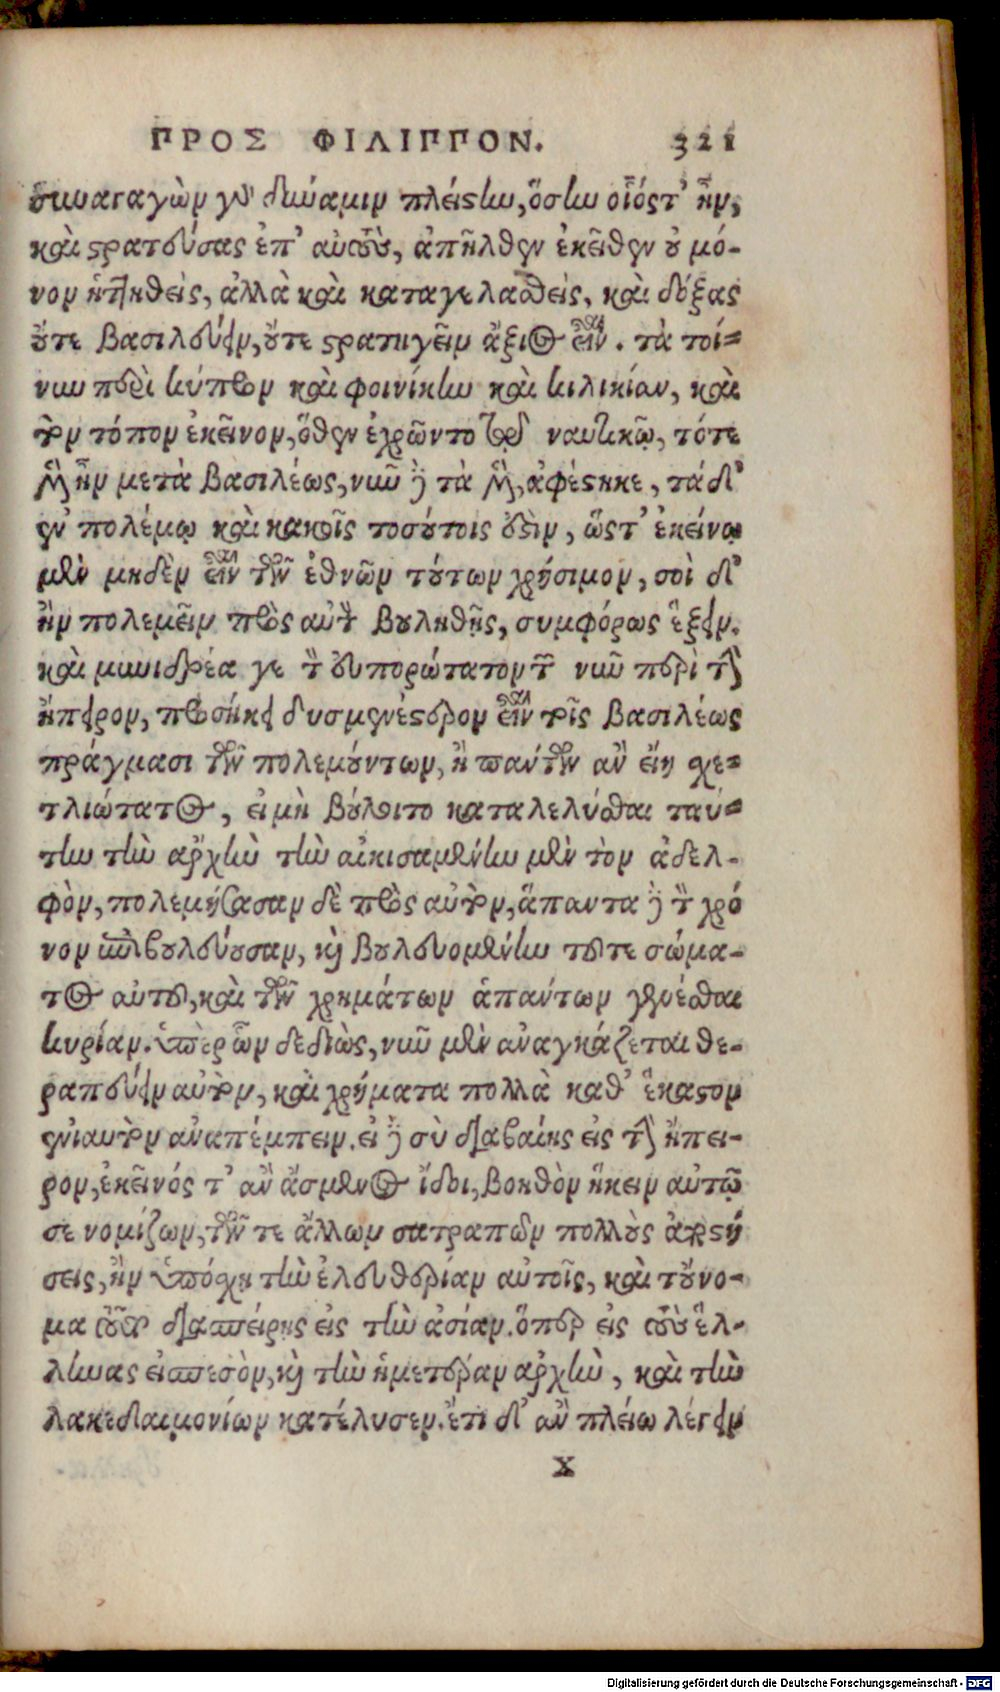 ΠΡΟΣ ΦΙΛΙΠΠΟΝ. 321
συναγαγὼν γὰρ δύναμιν πλείστην, ὅστην οἷός τ' ἦν,
καὶ στρατεύσας ἐπ' αὐτοὺς, ἀπῆλθεν ἐκεῖθεν οὐ μό-
νον ἡττηθεὶς, ἀλλὰ καὶ καταγελασθεὶς, καὶ δόξας
οὔτε βασιλεύειν, οὔτε στρατηγεῖν ἄξιος εἶναι. τὰ τοί-
νυν περὶ κύπρον καὶ φοινίκην καὶ κιλικίαν, καὶ
τὸν τόπον ἐκεῖνον, ὅθεν ἐχρῶντο τῷ ναυτικῷ, τότε
μὲν ἦν μετὰ βασιλέως, νῦν δὲ τὰ μὲν, ἀφέστηκε, τὰ δ'
ἐν πολέμῳ καὶ κακοῖς τοσούτοις ἐστὶν, ὥστ' ἐκείνῳ
μὲν μηδὲν εἶναι τῶν ἐθνῶν τούτων χρήσιμον, σοὶ δ'
ἢν πολεμεῖν πρὸς αὐτὸν βουληθῇς, συμφόρως ἕξειν.
καὶ μὴν ἰδριέα γε τὸν εὐπορώτατον τῶν νῦν περὶ τὴν
ἤπειρον, προσήκει δυσμενέστερον εἶναι τοῖς βασιλέως
πράγμασι τῶν πολεμούντων, ἢ πάντων ἂν εἴη σχε-
τλιώτατος, εἰ μὴ βούλοιτο καταλελύσθαι ταύ-
την τὴν ἀρχὴν τὴν αἰκισαμένην μὲν τὸν ἀδελ-
φὸν, πολεμήσασαν δὲ πρὸς αὐτὸν, ἅπαντα δὲ τὸν χρό
νον ἐπιβουλεύουσαν, καὶ βουλευομένην τοῦ τε σώμα-
τος αὐτοῦ, καὶ τῶν χρημάτων ἁπάντων γενέσθαι
κυρίαν. ὑπὲρ ὧν δεδιὼς, νῦν μὲν ἀναγκάζεται θε-
ραπεύειν αὐτὸν, καὶ χρήματα πολλὰ καθ' ἕκαστον
ἐνιαυτὸν ἀναπέμπειν. εἰ δὲ σὺ διαβαίης εἰς τὴν ἤπει-
ρον, ἐκεῖνός τ' ἂν ἄσμενος ἴδοι, βοηθὸν ἥκειν αὐτῷ
σε νομίζων, τῶν τε ἄλλων σατραπῶν πολλοὺς ἀποστή
σεις, ἢν ὑπόσχῃ τὴν ἐλευθερίαν αὐτοῖς, καὶ τοὔνο-
μα τοῦτο διασπείρῃς εἰς τὴν ἀσίαν. ὅπερ εἰς τοὺς ἕλ-
ληνας εἰσπεσὸν, καὶ τὴν ἡμετέραν ἀρχὴν, καὶ τὴν
λακεδαιμονίων κατέλυσεν. ἔτι δ' ἂν πλείω λέγειν
X